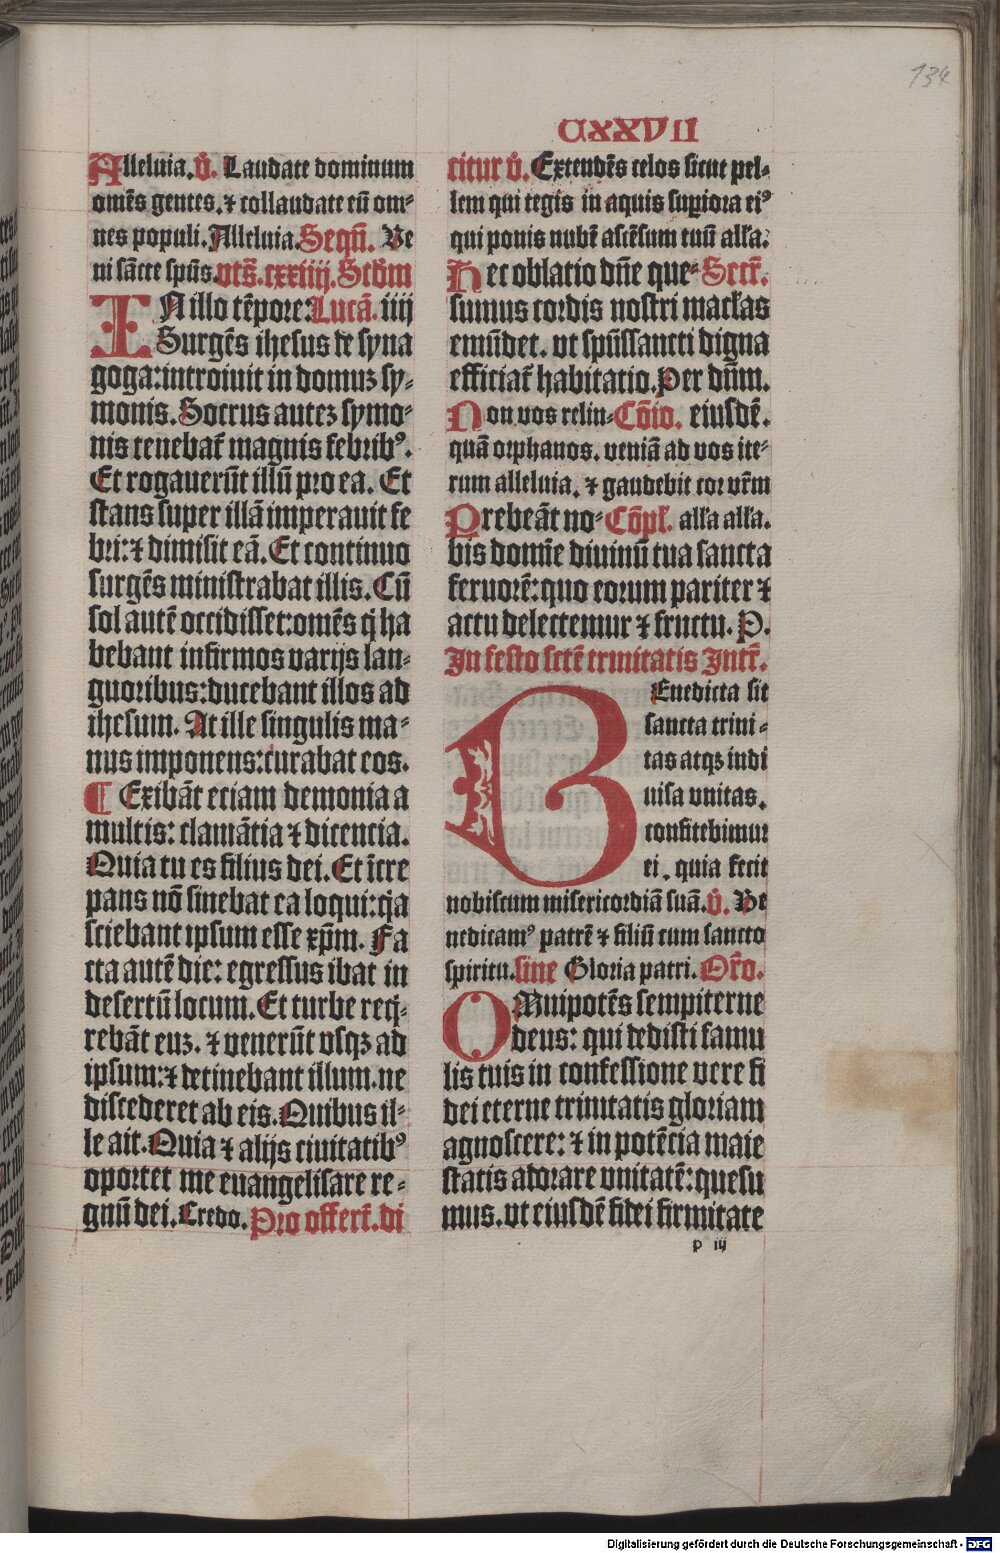 134
CXXVII
Alleluia. v̄. Laudate dominum
om̄es gentes. ⁊ collaudate eū om⸗
nes populi. Alleluia. Seqn̄. Ve
ni sācte spūs. vts̄. cxxiiij. Scd̄m
IN illo tēpore: Lucā. iiij
Surgēs ihesus de syna
goga: introiuit in domuꝫ sy⸗
monis. Socrus auteꝫ symo⸗
nis tenebat᷑ magnis febribꝰ.
Et rogauerūt illū pro ea. Et
stans super illā imperauit fe
bri: ⁊ dimisit eā. Et continuo
surgēs ministrabat illis. Cū
sol autē occidisset: om̄es q̄ ha
bebant infirmos varijs lan⸗
guoribus: ducebant illos ad
ihesum. At ille singulis ma⸗
nus imponens: curabat eos.
¶ Exibāt eciam demonia a
multis: clamātia ⁊ dicencia.
Quia tu es filius dei. Et īcre
pans nō sinebat ea loqui: q̄a
sciebant ipsum esse xp̄m. Fa
cta autē die: egressus ibat in
desertū locum. Et turbe req̄⸗
rebāt euꝫ. ⁊ venerūt vsqꝫ ad
ipsum: ⁊ detinebant illum. ne
discederet ab eis. Quibus il⸗
le ait. Quia ⁊ alijs ciuitatibꝰ
oportet me euangelisare re⸗
gnū dei. Credo. Pro offert̄. di
citur v̄. Extendēs celos sicut pel⸗
lem qui tegis in aquis supiora eiꝰ
qui ponis nubē ascēsum tuū alła.
Hec oblatio dn̄e que⸗ Secr̄.
sumus cordis nostri macłas
emūdet. vt spūssancti digna
efficiat᷑ habitatio. Per dn̄m.
Non vos relin⸗ Cōio. eiusdē.
quā orphanos. veniā ad vos ite⸗
rum alleluia. ⁊ gaudebit cor vr̄m
Prebeāt no⸗ Cōpł. alła alła.
bis domīe diuinū tua sancta
feruorē: quo eorum pariter ⁊
actu delectemur ⁊ fructu. P.
In festo scte̅ trinitatis Intr̄.
BEnedicta sit
sancta trini⸗
tas atqꝫ indi
uisa vnitas.
confitebimur
ei. quia fecit
nobiscum misericordiā suā. v̄. Be
nedicamꝰ patrē ⁊ filiū cum sancto
spiritu. sine Gloria patri. Or̄o.
OMnipotēs sempiterne
deus: qui dedisti famu
lis tuis in confessione vere fi
dei eterne trinitatis gloriam
agnoscere: ⁊ in potēcia maie
statis adorare vnitatē: quesu
mus. vt eiusdē fidei firmitate
p iij
Digitalisierung gefördert durch die Deutsche Forschungsgemeinschaft - DFG